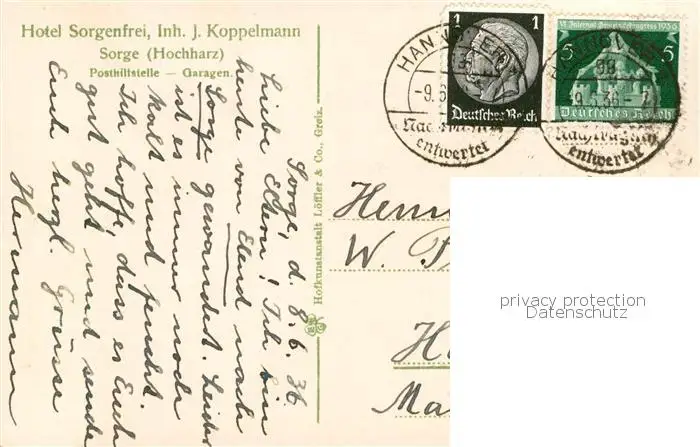 Hotel Sorgenfrei, Inh. J. Koppelmann
Sorge (Hochharz)
Posthilfstelle — Garagen.
Sorge, d. 8.6.36.
Liebe Eltern! Ich bin
heute von Elend nach
Sorge gewandert. Leider
ist es immer noch
kalt und feucht.
Ich hoffe, dass es Euch
gut geht und sende
Euch herzl. Grüsse
Hermann
Hofkunstanstalt Löffler & Co., Greiz.
HANNOVER
-9.6
Nachträglich
entwertet
1
1
Deutsches Reich
VI. Internat. Gemeindekongress 1936
5
5
Deutsches Reich
Nachträglich
entwertet
W.
H
Ma
privacy protection
Datenschutz